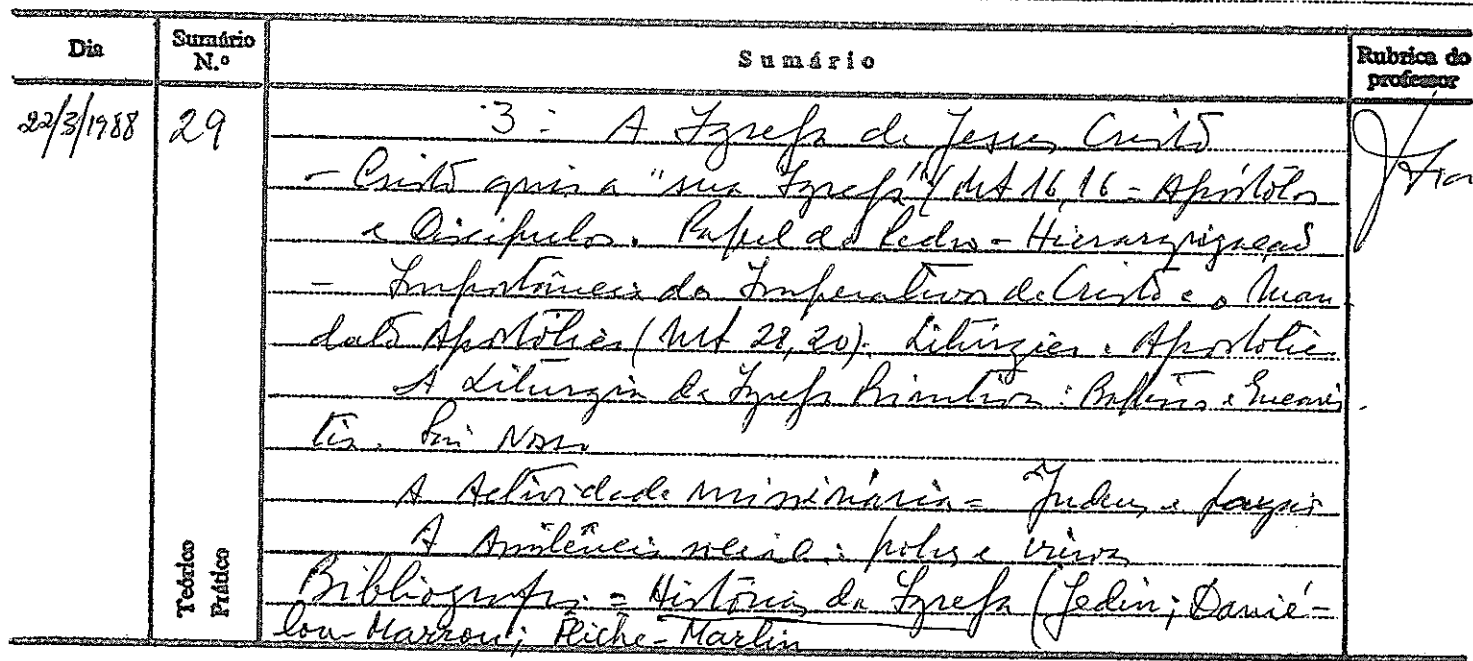 Dia Sumário N.º Sumário Rubrica do professor
22/3/1988 29 3 - A Igreja de Jesus Cristo
- Cristo quis a "sua Igreja" (Mt 16,16 - Apóstolos
e Discípulos. Papel de Pedro - Hierarquização
- Importância do Imperativo de Cristo e o Man
dato Apostólico (Mt 28,20). Litúrgica e Apostólic
A Liturgia da Igreja Primitiva: Baptismo e Eucaris
tia. Pai Nosso
A Actividade missionária = Judeus e pagãos
A Assistência social: pobres e viúvas
Bibliografia = História da Igreja (Jedin; Danié-
lou-Marrou; Fliche-Martin
Teórico
Prático